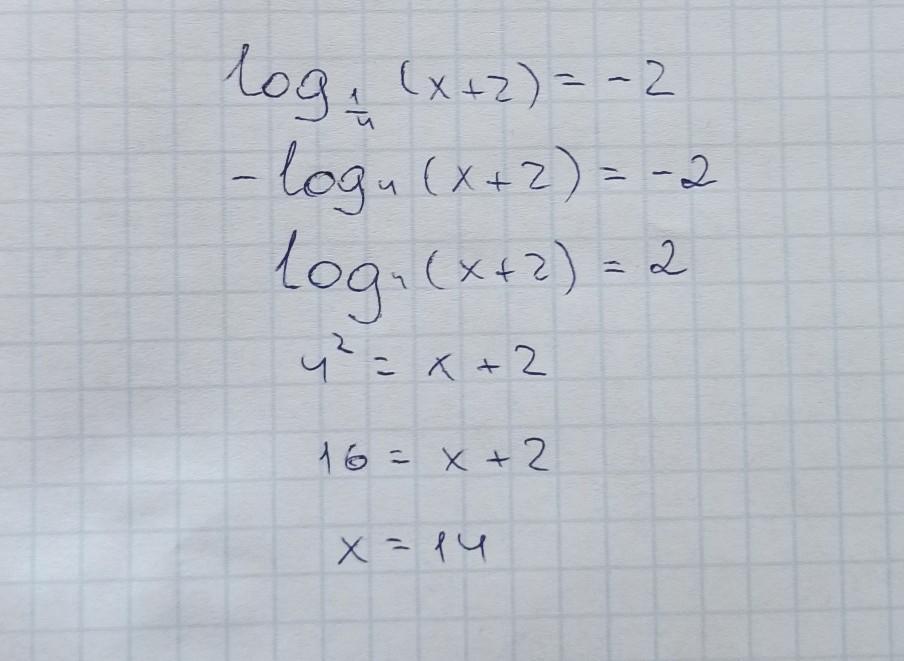 log_{1/4} (x+2) = -2
-log_4 (x+2) = -2
log_4 (x+2) = 2
4^2 = x + 2
16 = x + 2
x = 14